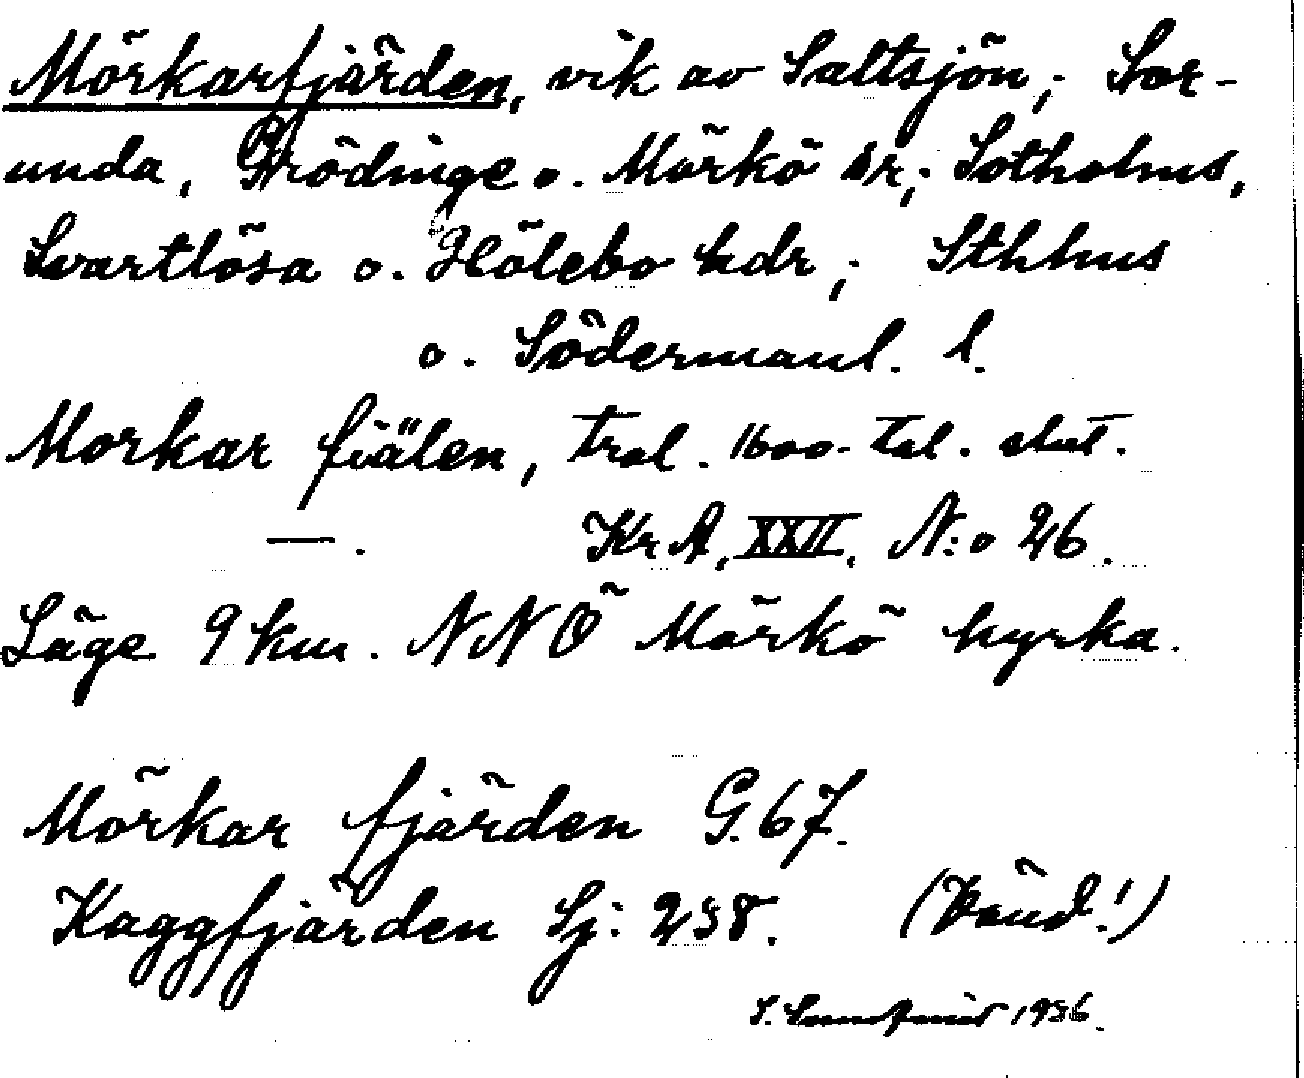 Mörkarfjärden, vik av Saltsjön; Sor-
unda, Grödinge o. Mörkö sr; Sotholms,
Svartlösa o. Hölebo hdr; Sthlms
o. Södermanl. l.
Morkar fiälen, trol. 1600-tal. slut.
—. Kr A, XXII, N:o 26.
Läge 9 km. NNÖ Mörkö kyrka.
Mörkar fjärden G. 67.
Kaggfjärden Sj: 238. (Vänd!)
S. 1936.